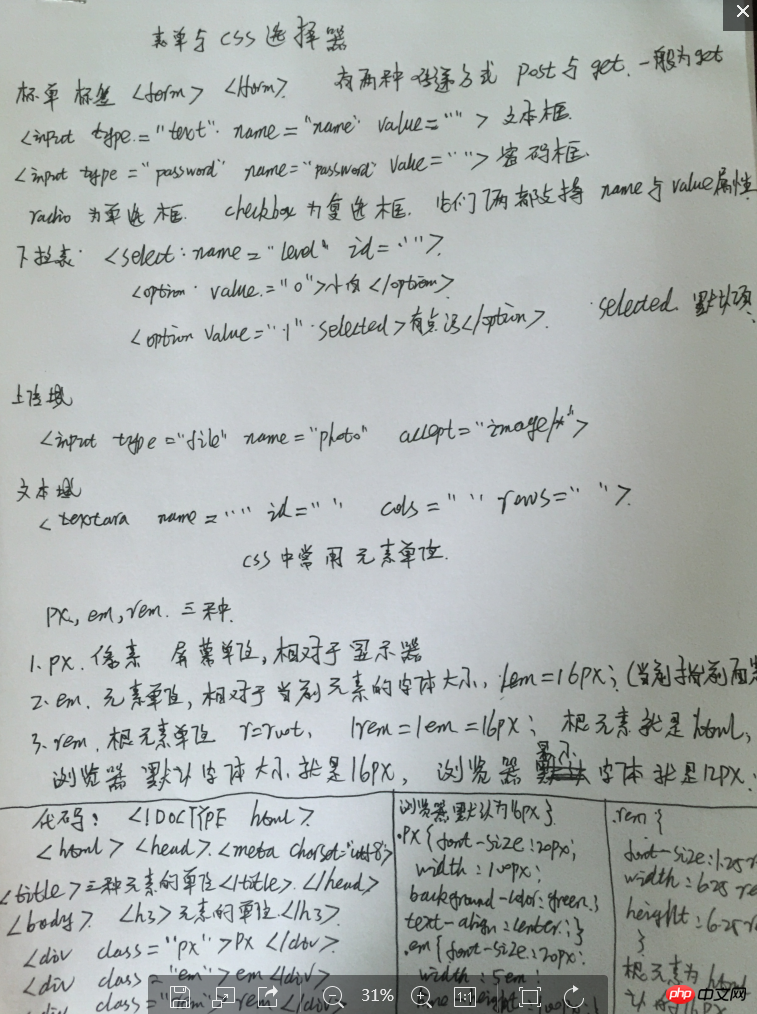 表单与CSS选择器
标单标签 <form> </form>. 有两种传递方式 post与get. 一般为get
<input type="text" name="name" value=""> 文本框.
<input type="password" name="password" value=""> 密码框.
radio 为单选框. checkbox 为复选框. 它们俩都支持 name与value属性
下拉表: <select: name="level" id="">.
<option value="0">小白</option>
<option value="1" selected>有点</option>. selected. 默认项
上传域
<input type="file" name="photo" accept="image/*">
文本域
<textara name="" id="" cols="" rows="">.
CSS中常用元素单位.
px, em, rem. 三种.
1. px. 像素 屏幕单位, 相对于显示器
2. em. 元素单位, 相对于当前元素的字体大小, 1em=16px; (当前指前面
3. rem. 根元素单位 r=root, 1rem=1em=16px; 根元素就是html,
浏览器默认字体大小就是16px, 浏览器最小字体就是12px.
代码: <!DOCTYPE html>.
<html> <head>. <meta charset="utf-8">
<title>三种元素的单位</title>. </head>
<body>. <h3>元素的单位.</h3>.
<div class="px">px </div>.
<div class="em">em</div>
<div class="rem">rem</div>
浏览器默认为16px }.
.px{font-size:20px;
width:100px;
background-color:green;
text-align:center;}
.em{font-size:20px;
width:5em;
.rem {
font-size:1.25r
width:6.25 re
height:6.25r
}
根元素为html
31%
1:1
php 中文网